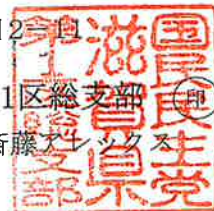 2－11
1区総支部 ㊞
斎藤アレックス
国民民主党
滋賀県
第一区総支部